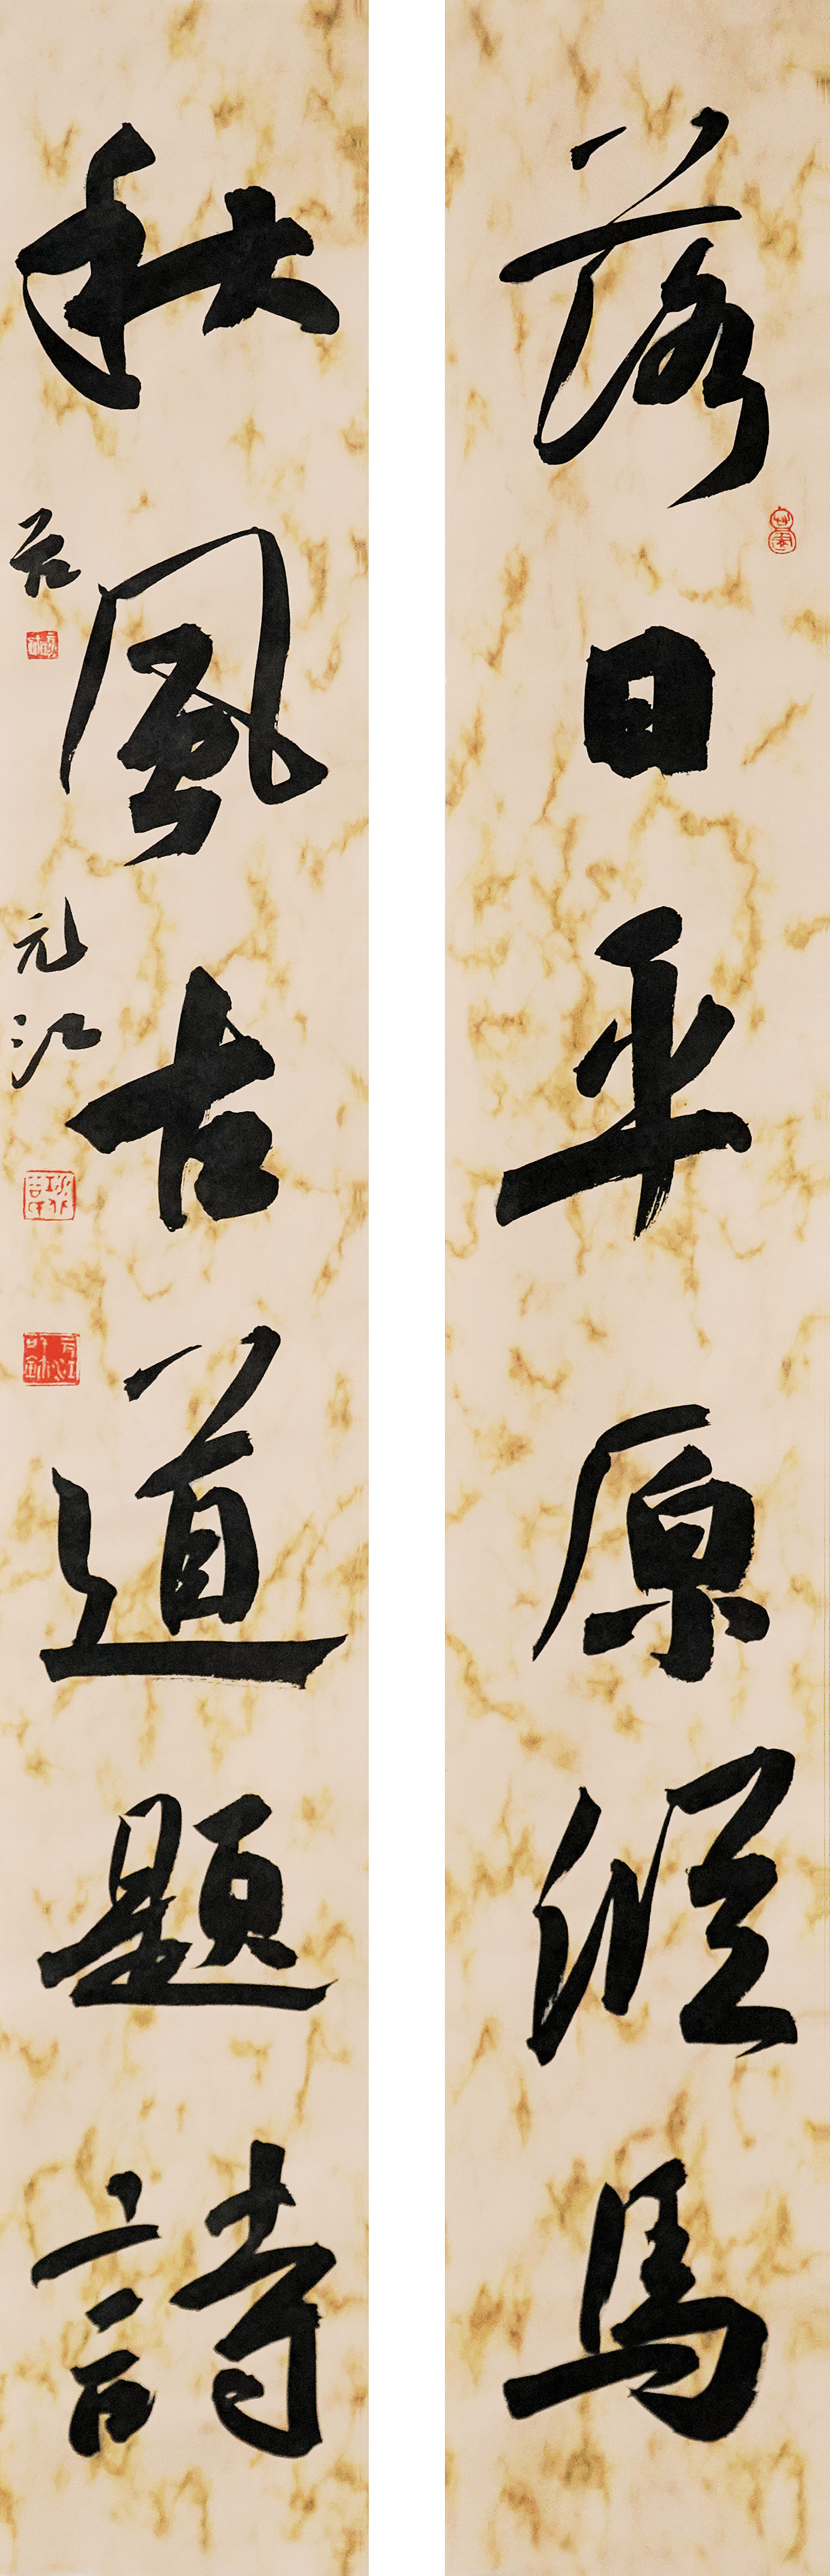 落日平原縱馬
秋風古道題詩
元江